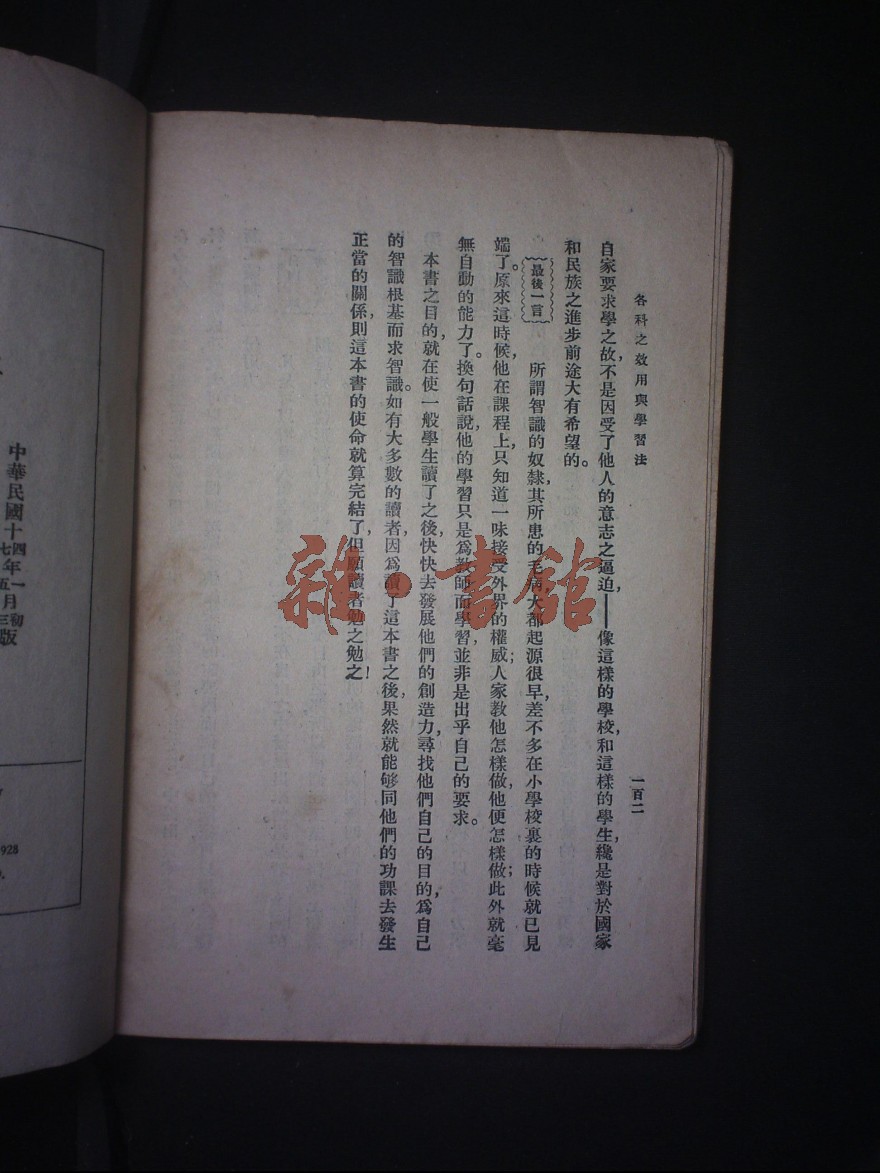 各科之效用與學習法
一百二
自家要求學之故，不是因受了他人的意志之逼迫，——像這樣的學校，和這樣的學生，纔是對於國家
和民族之進步前途大有希望的。
最後一言
所謂智識的奴隸，其所患的毛病大都起源很早，差不多在小學校裏的時候就已見
端了。原來這時候，他在課程上，只知道一味接受外界的權威；人家教他怎樣做，他便怎樣做；此外就毫
無自動的能力了。換句話說，他的學習只是爲教師而學習，並非是出乎自己的要求。
本書之目的，就在使一般學生讀了之後，快快去發展他們的創造力，尋找他們自己的目的，爲自己
的智識根基而求智識。如有大多數的讀者，因爲讀了這本書之後，果然就能够同他們的功課去發生
正當的關係，則這本書的使命就算完結了，但願讀者勉之勉之！
雜·書館
中華民國十四年一月初版
七年五月三版
928